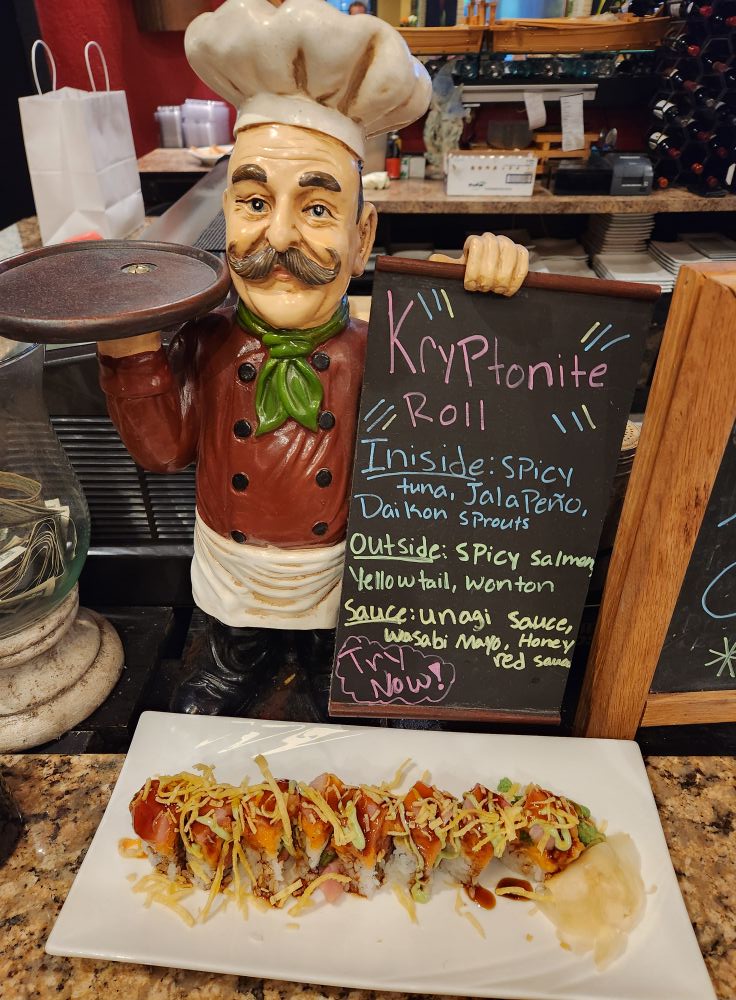 Kryptonite
Roll
Iniside: spicy
tuna, Jalapeño,
Daikon sprouts
Outside: spicy salmon,
Yellowtail, wonton
Sauce: unagi sauce,
wasabi Mayo, Honey
red sauce
Try
Now!